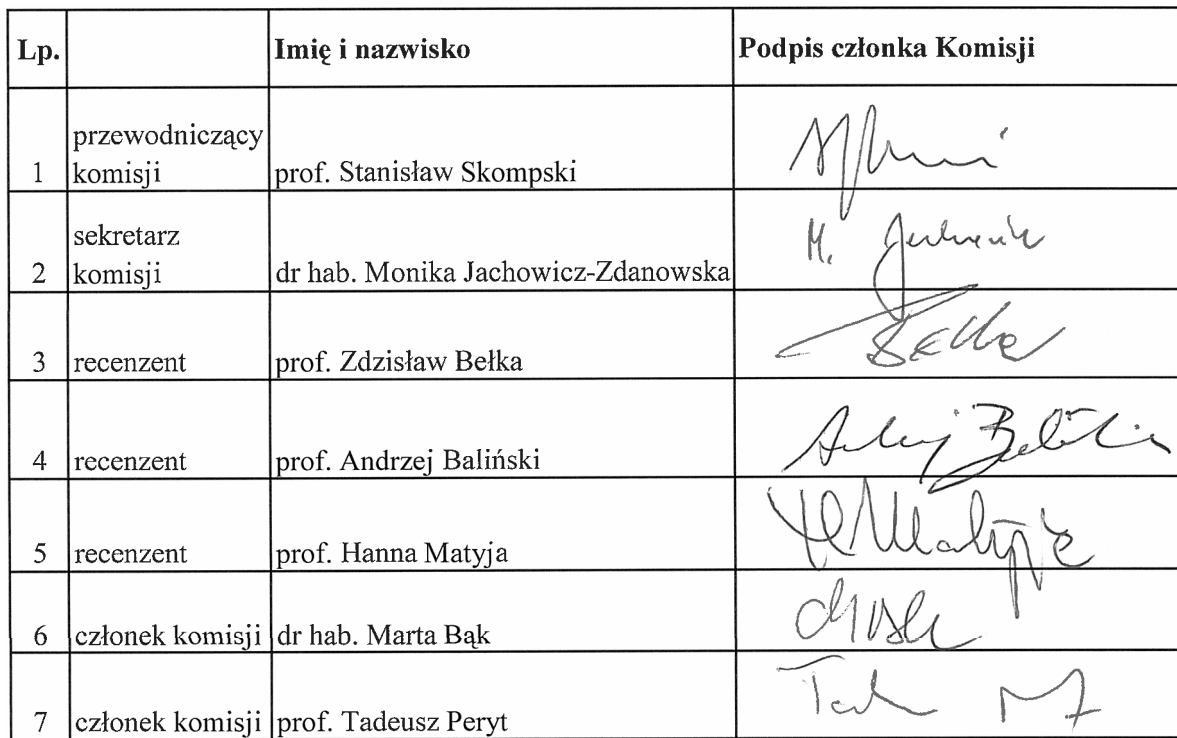 Lp. Imię i nazwisko Podpis członka Komisji
1 przewodniczący komisji prof. Stanisław Skompski
2 sekretarz komisji dr hab. Monika Jachowicz-Zdanowska M.
3 recenzent prof. Zdzisław Bełka
4 recenzent prof. Andrzej Baliński
5 recenzent prof. Hanna Matyja H Matyja
6 członek komisji dr hab. Marta Bąk
7 członek komisji prof. Tadeusz Peryt